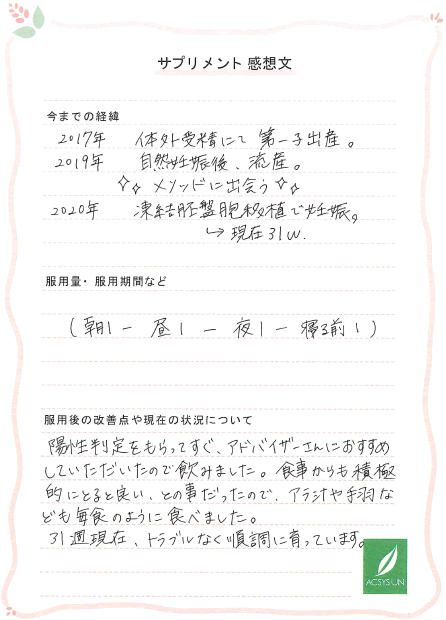 サプリメント 感想文
今までの経緯
2017年 体外受精にて 第一子出産。
2019年 自然妊娠後、流産。
メソッドに出会う
2020年 凍結胚盤胞移植で妊娠。
↳ 現在31W.
服用量・服用期間など
(朝1 ー 昼1 ー 夜1 ー 寝る前1)
服用後の改善点や現在の状況について
陽性判定をもらってすぐ、アドバイザーさんにおすすめ
していただいたので飲みました。食事からも積極
的にとると良い、との事だったので、アラジャや手羽な
ども毎食のように食べました。
31週現在、トラブルなく順調に育っています。
ACSYSUN